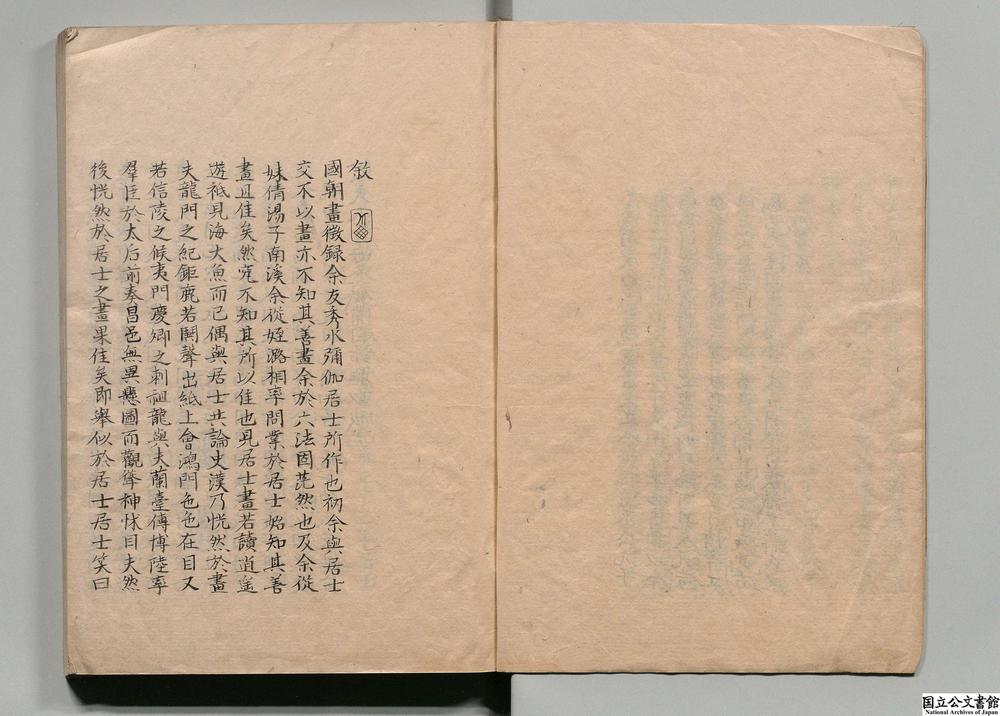 敘
國朝畫徵録余友秀水彌伽居士所作也初余與居士
交不以畫亦不知其善畫余於六法固茫然也及余從
妹倩湯子南溪余從姪潞相率問業於居士始知其善
畫且佳矣然究不知其所以佳也見居士畫若讀逍遥
遊祗見海大魚而已偶與居士共論史漢乃恍然於畫
夫龍門之紀鉅鹿若鬨聲出紙上會鴻門色色在目又
若信陵之候夷門慶卿之刺祖龍與夫蘭臺傳博陸率
羣臣於太后前奏昌邑無異懸圖而觀驚神怵目夫然
後恍然於居士之畫果佳矣即舉似於居士居士笑曰
国立公文書館
National Archives of Japan